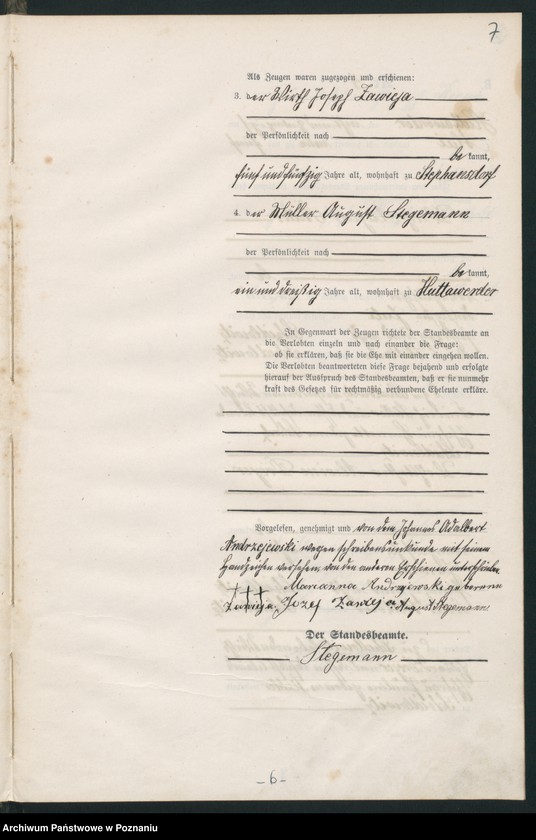 7
Als Zeugen waren zugezogen und erschienen:
3. der Wirth Joseph Zawieja
der Persönlichkeit nach
be kannt,
fünf und fünfzig Jahre alt, wohnhaft zu Stephansdorf
4. der Müller August Stegemann
der Persönlichkeit nach
be kannt,
ein und dreißig Jahre alt, wohnhaft zu Huttawerder
In Gegenwart der Zeugen richtete der Standesbeamte an
die Verlobten einzeln und nach einander die Frage:
ob sie erklären, daß sie die Ehe mit einander eingehen wollen.
Die Verlobten beantworteten diese Frage bejahend und erfolgte
hierauf der Ausspruch des Standesbeamten, daß er sie nunmehr
kraft des Gesetzes für rechtmäßig verbundene Eheleute erkläre.
Vorgelesen, genehmigt und von dem Johannes Adalbert
Andrzejewski wegen Schreibensunkunde mit seinem
Handzeichen versehen, von den anderen Erschienenen unterschrieben
+++ Marianna Andrzejewski geborenne
Zawieja. Jozef Zawieja. August Stegemann
Der Standesbeamte.
Stegemann
- 6 -
Archiwum Państwowe w Poznaniu